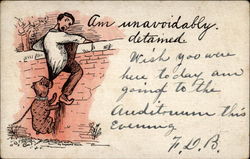 Am unavoidably.
detained
Wish you were
here to day am
going to the
Auditorium this
evening
F. D. B.